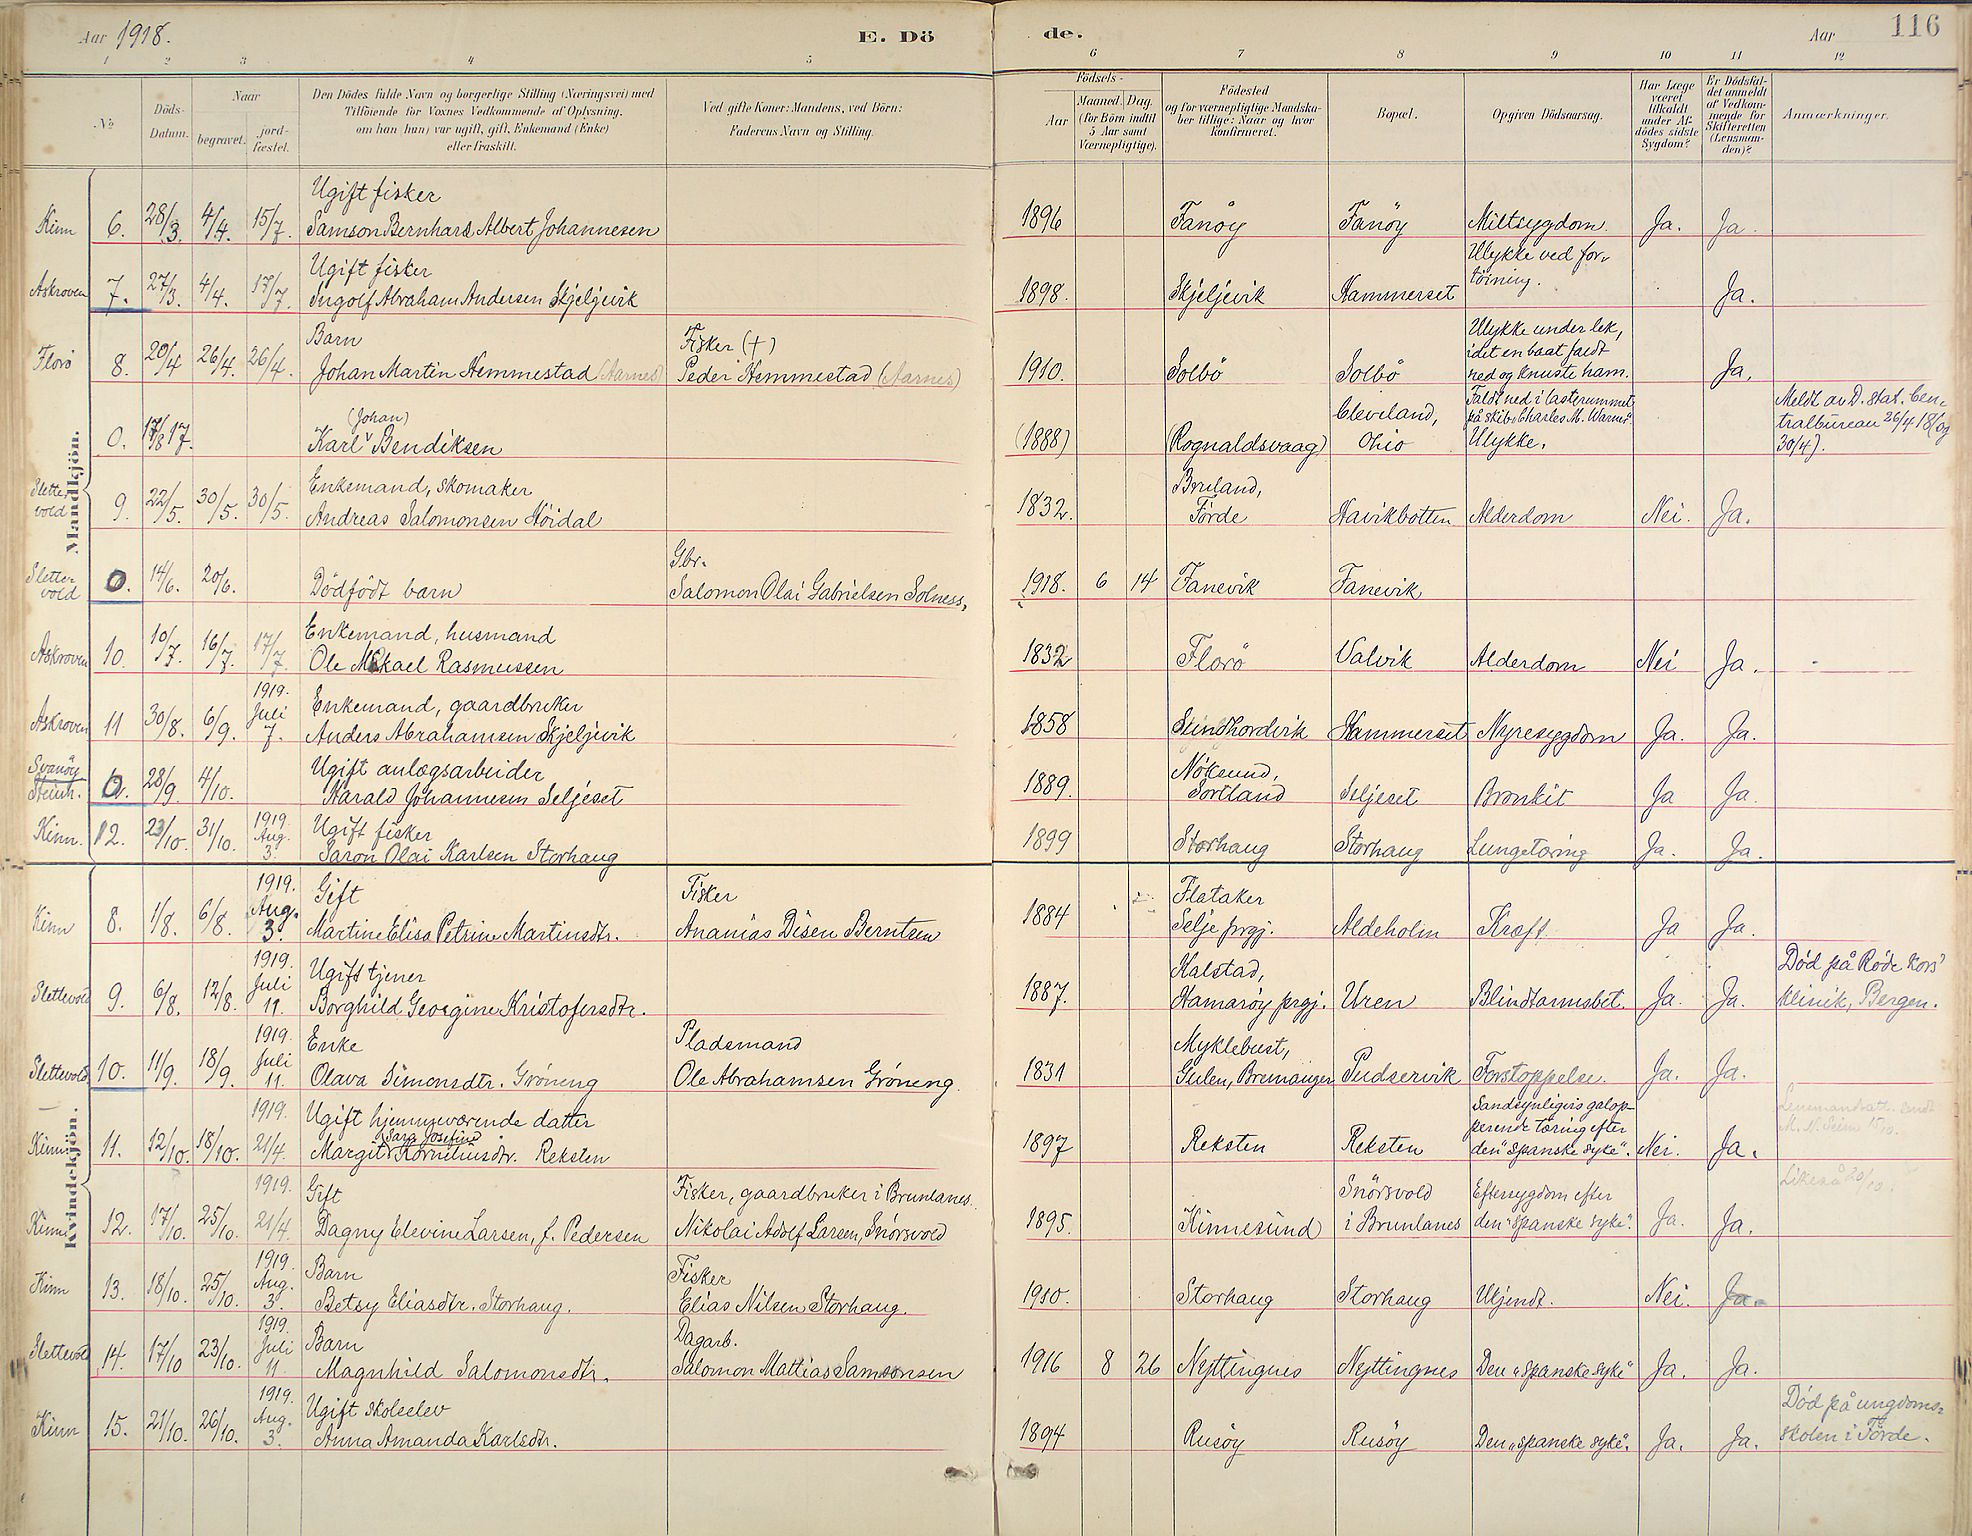 Aar 1918. E. Dö de. Aar 116
1 2 3 4 5 6 7 8 9 10 11 12
№
Döds-
Datum.
Naar
begravet.
jord-
fæstet.
Den Dödes fulde Navn og borgerlige Stilling (Næringsvei) med
Tilföiende for Voxnes Vedkommende af Oplysning,
om han (hun) var ugift, gift, Enkemand (Enke)
eller fraskilt.
Ved gifte Koner: Mandens, ved Börn:
Faderens Navn og Stilling.
Födsels-
Aar
Maaned. Dag.
(for Börn indtil
5 Aar samt
Værnepligtige).
Födested
og for værnepligtige Mandska-
ber tillige: Naar og hvor
konfirmeret.
Bopæl.
Opgiven Dödsaarsag.
Har Læge
været
tilkaldt
under Af-
dödes sidste
Sygdom?
Er Dödsfal-
det anmeldt
af Vedkom-
mende for
Skifteretten
(Lensman-
den)?
Anmærkninger.
Mandkjön.
Ugift fisker
Kinn 6. 28/3. 4/4. 15/7. Samson Bernhard Albert Johannesen 1896 Fanöy Fanöy Miltsygdom. Ja. Ja.
Ugift fisker Ulykke ved for-
töining.
Askroven 7. 27/3. 4/4. 17/7. Ingolf Abraham Andersen Skjeljevik 1898. Skjeljevik Hammerset Ja.
Barn Fisker (+) Ulykke under lek,
idet en baat faldt
Florö 8. 20/4 26/4. 26/4. Johan Martin Hemmestad (Aarnes) Peder Hemmestad (Aarnes) 1910. Solbö Solbö ned og knuste ham. Ja.
(Johan) Cleveland, Faldt ned i lasterummet
på skibet Charles M. Warner Meldt av D. stat. Cen-
tralbureau 26/4 18 (og
0. 17/8 17. Karl Bendiksen (1888) (Rognaldsvaag) Ohio Ulykke. 30/4).
Enkemand, skomaker Bruland,
Slette-
vold 9. 22/5. 30/5. 30/5. Andreas Salomonsen Höidal 1832. Förde Havikbotten Alderdom Nei. Ja.
Gbr.
Sletten
vold 0. 14/6. 20/6. Dödfödt barn Salomon Olai Gabrielsen Solness, 1918. 6 14 Fanevik Fanevik
Enkemand, husmand
Askroven 10. 10/7. 16/7. 17/7. Ole Mikael Rasmussen 1832 Florö Valvik Alderdom Nei Ja.
1919. Enkemand, gaardbruker
Juli
Askroven 11 30/8. 6/9. 7. Anders Abrahamsen Skjeljevik 1858 Hammerset Nyresygdom Ja. Ja.
Ugift anlægsarbeider Nöksund,
Svanöy
Steinh. 0. 28/9. 4/10. Harald Johannesen Seljeset 1889. Sortland Seljeset Bronkit Ja Ja.
1919. Ugift fisker
Aug.
Kinn. 12. 23/10. 31/10. 3. Saron Olai Karlsen Storhaug 1899 Storhaug Storhaug Lungetæring Ja. Ja.
Kvindekjön.
1919. Gift Fisker Flataker
Aug.
Kinn 8. 1/8. 6/8. 3. Martine Elisa Petrine Martinsdtr. Ananias Disen Berntsen 1884 Selje prgj. Aldeholm Kræft. Ja Ja.
1919. Ugift tjener Halstad, Död på Röde Kors'
Juli
Slettevold 9. 6/8. 12/8. 11. Borghild Georgine Kristofersdtr. 1887. Hamaröy prgj. Uren Blindtarmsbet. Ja. Ja. klinik, Bergen.
1919. Enke Pladsmand Myklebust,
Juli
Slettevold. 10. 11/9. 18/9. 11. Olava Simonsdtr. Gröneng Ole Abrahamsen Gröneng. 1831 Gulen, Bremanger Pudservik Forstoppelse. Ja. Ja.
1919. Ugift hjemmeværende datter Sandsynligvis galop-
perende tæring efter
Sara Josefine
Kinn 11. 12/10. 18/10. 21/4. Margit Korneliusdtr. Reksten 1897 Reksten Reksten den "spanske syke". Nei. Ja.
1919. Gift Fisker, gaardbruker i Brunlanes. Snörsvold Eftersygdom efter Likeså 20/10.
Kinn 12. 17/10. 25/10. 21/4. Dagny Elevine Larsen, f. Pedersen Nikolai Adolf Larsen, Snörsvold 1895. Kinnesund i Brunlanes den "spanske syke". Ja. Ja.
1919. Barn Fisker
Aug.
Kinn 13. 18/10. 25/10. 3. Betsy Eliasdtr. Storhaug. Elias Nilsen Storhaug. 1910. Storhaug Storhaug Ukjendt. Nei. Ja.
1919. Barn Dagarb.
Juli
Slettevold 14. 17/10 23/10. 11 Magnhild Salomonsdtr. Salomon Mattias Samsonsen 1916 8 26 Nyttingnes Nyttingnes Den "spanske syke" Ja. Ja.
1919. Ugift skoleelev Död på ungdoms-
Aug.
Kinn 15. 21/10. 26/10. 3. Anna Amanda Karlsdtr. 1894 Rusöy Rusöy Den "spanske syke". Ja. Ja. skolen i Förde.